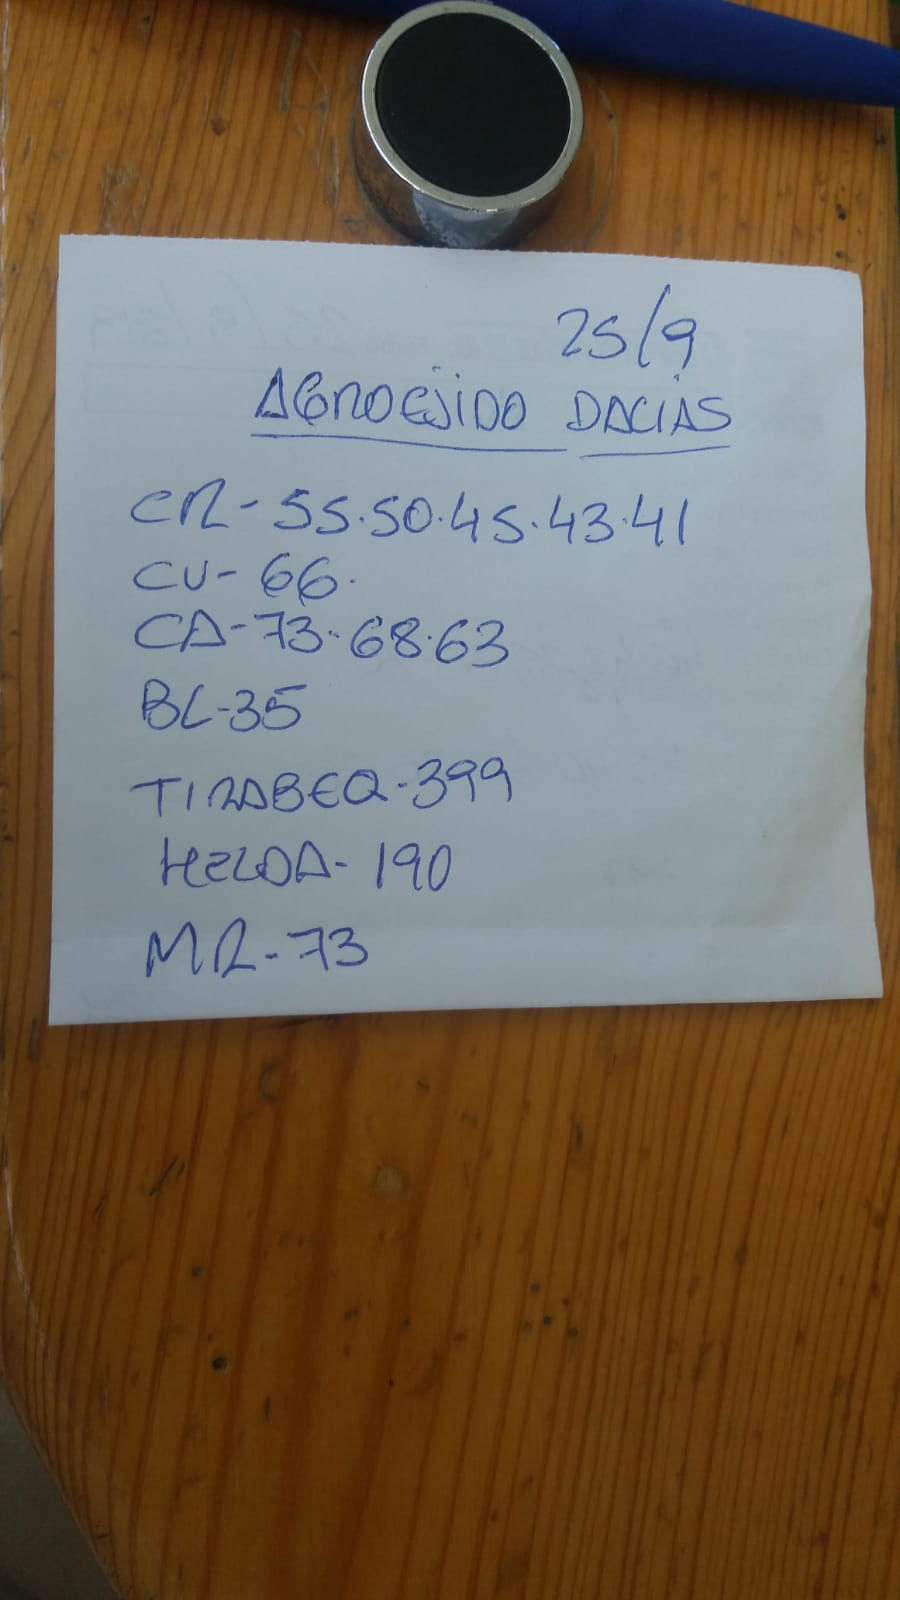 25/9
AGROEJIDO DACIAS
CR- 55.50.45.43.41
CU- 66.
CA-73-68.63
BL-35
TIRABEQ-399
HELDA- 190
MR-73